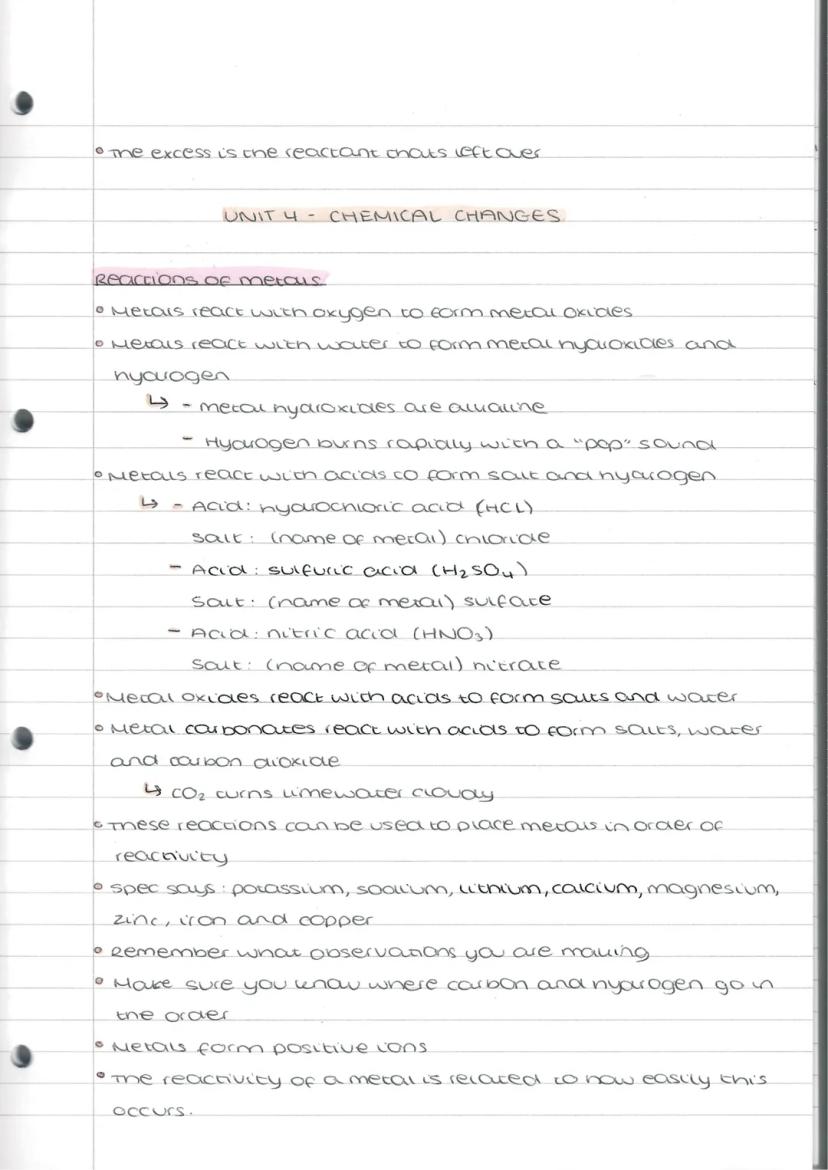 • The excess is the reactant thats left over
UNIT 4 - CHEMICAL CHANGES
Reactions of metals
• Metals react with oxygen to form metal oxides
• Metals react with water to form metal hydroxides and
hydrogen
↳ - metal hydroxides are alkaline
- Hydrogen burns rapidly with a "pop" sound
• Metals react with acids to form salt and hydrogen
↳ - Acid: hydrochloric acid (HCL)
Salt: (name of metal) chloride
- Acid: sulfuric acid (H₂SO₄)
Salt: (name of metal) sulfate
- Acid: nitric acid (HNO₃)
Salt: (name of metal) nitrate
• Metal oxides react with acids to form salts and water
• Metal carbonates react with acids to form salts, water
and carbon dioxide
↳ CO₂ turns limewater cloudy
• These reactions can be used to place metals in order of
reactivity
• Spec says: potassium, sodium, lithium, calcium, magnesium,
zinc, iron and copper
• Remember what observations you are making
• Make sure you know where carbon and hydrogen go in
the order
• Metals form positive ions
• The reactivity of a metal is related to how easily this
occurs.